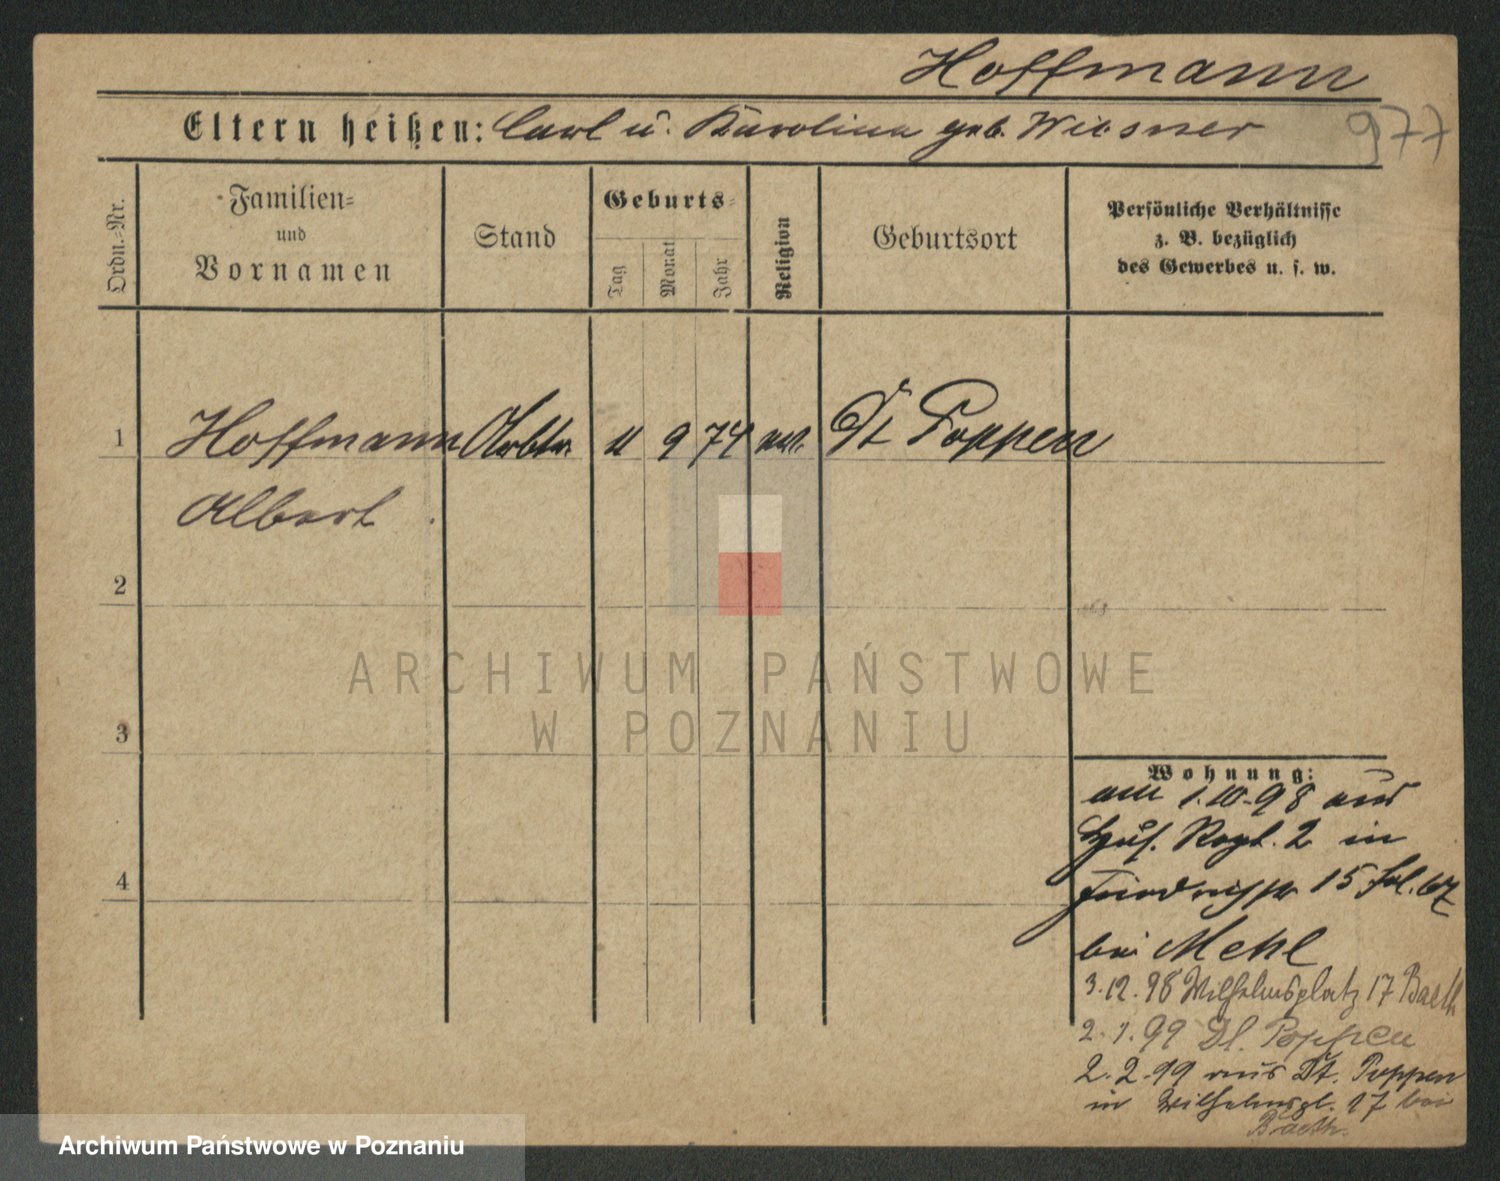 Hoffmann
Eltern heißen: Carl u. Karolina geb. Wiesner
977
Ordn.-Nr.
Familien-
und
Vornamen
Stand
Geburts-
Tag
Monat
Jahr
Religion
Geburtsort
Persönliche Verhältnisse
z. B. bezüglich
des Gewerbes u. s. w.
1
Hoffmann Arbtr. 11 9 74 Dt Poppen
Albert
2
3
4
Wohnung:
am 1.10.98 aus
Hus. Regt. 2 in
15
bei Mehl
3.12.98 Wilhelmsplatz 17 Baeth
2.1.99 Dt. Poppen
2.2.99 aus Dt. Poppen
in Wilhelmspl. 17 bei
Baeth.
ARCHIWUM PAŃSTWOWE
W POZNANIU
Archiwum Państwowe w Poznaniu